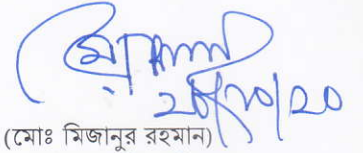 ২০/১০/২০
(মোঃ মিজানুর রহমান)